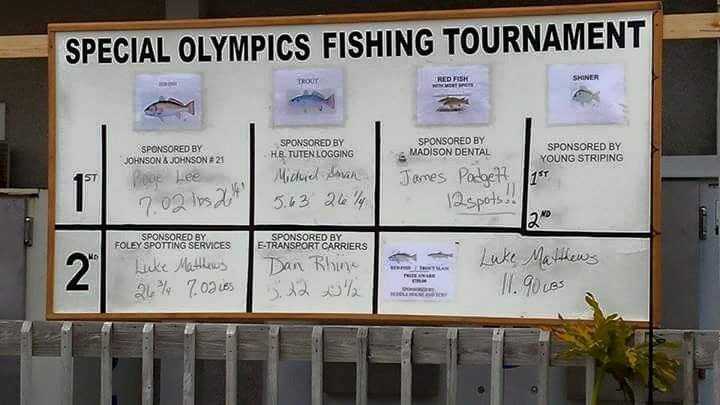 SPECIAL OLYMPICS FISHING TOURNAMENT
TROUT
RED FISH
WITH MOST SPOTS
SHINER
1ST
SPONSORED BY
JOHNSON & JOHNSON # 21
Page Lee
7.02 lbs 26 1/4"
SPONSORED BY
H.B. TUTEN LOGGING
Michael
5.63 26 1/4
SPONSORED BY
MADISON DENTAL
James Padgett
12 spots!!
SPONSORED BY
YOUNG STRIPING
1ST
2ND
2ND
SPONSORED BY
FOLEY SPOTTING SERVICES
Luke Matthews
26 3/4 7.02 LBS
SPONSORED BY
E-TRANSPORT CARRIERS
Dan Rhine
5.22 23 1/2
RED FISH / TROUT SLAM
PRIZE AWARD
SPONSORED BY
Luke Matthews
11.90 LBS